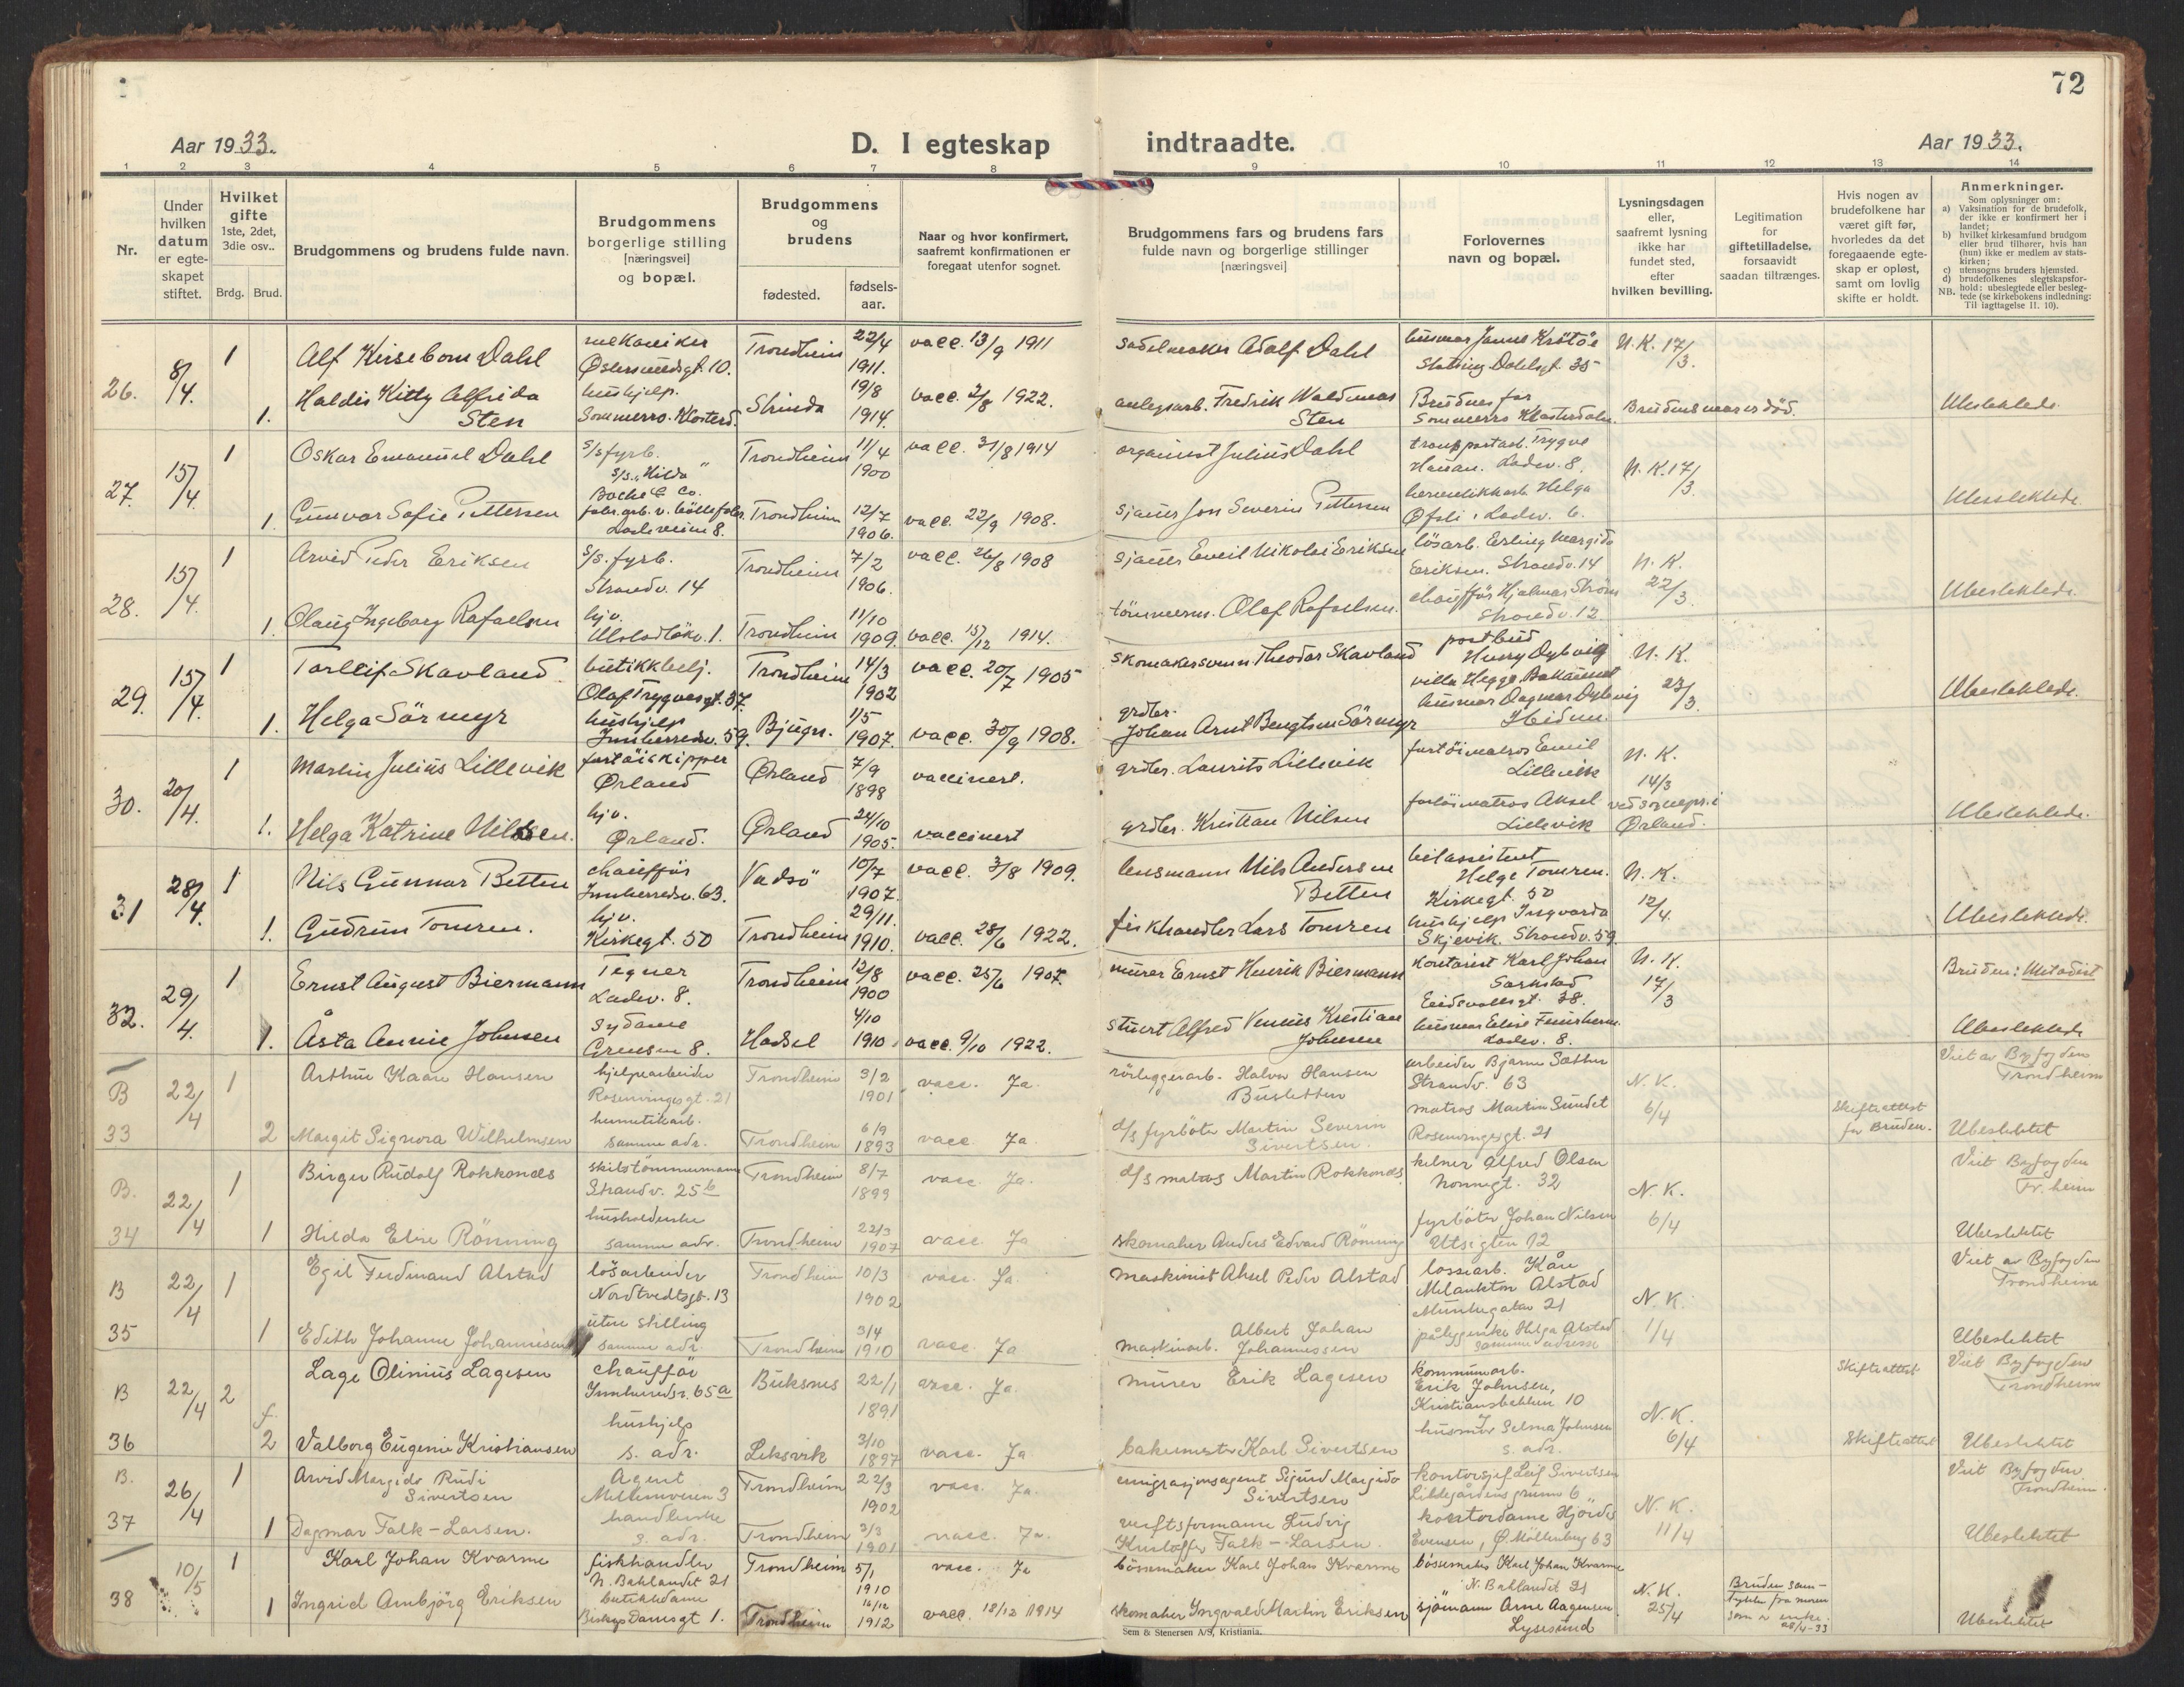 72
Aar 1933.
D. I egteskap indtraadte.
Aar 1933.
1 2 3 4 5 6 7 8 9 10 11 12 13 14
Nr.
Under hvilken datum er egteskapet stiftet.
Hvilket gifte 1ste, 2det, 3die osv..
Brdg. Brud.
Brudgommens og brudens fulde navn.
Brudgommens borgerlige stilling [næringsvei] og bopæl.
Brudgommens og brudens
fødested.
fødselsaar.
Naar og hvor konfirmert, saafremt konfirmationen er foregaat utenfor sognet.
Brudgommens fars og brudens fars fulde navn og borgerlige stillinger [næringsvei]
Forlovernes navn og bopæl.
Lysningsdagen eller, saafremt lysning ikke har fundet sted, efter hvilken bevilling.
Legitimation for giftetilladelse, forsaavidt saadan tiltrænges.
Hvis nogen av brudefolkene har været gift før, hvorledes da det foregaaende egteskap er opløst, samt om lovlig skifte er holdt.
Anmerkninger.
Som oplysninger om:
a) Vaksination for de brudefolk, der ikke er konfirmert her i landet;
b) hvilket kirkesamfund brudgom eller brud tilhører, hvis han (hun) ikke er medlem av statskirken;
c) utensogns bruders hjemsted.
d) brudefolkenes slegtskapsforhold: ubeslegtede eller beslegtede (se kirkebokens indledning: Til iagttagelse II. 10).
NB.
26. 8/4. 1 Alf Kirsebom Dahl mekaniker Østersundsgt. 10. Trondheim 22/4 1911. vacc. 13/9 1911 Sadelmaker Adolf Dahl N.K. 17/3.
1. Haldis Kitty Alfrida Sten hushjelp. Sommerro. Klosterd. Strinda 19/8 1914. vacc. 2/8 1922. anlegsarb. Fredrik Waldemar Sten Brudens far Brudens mor er død. Ubeslektede.
27. 15/4. 1 Oskar Emanuel Dahl s/s fyrb. s/s. "Hilda" Bache & Co. Trondheim 11/4 1900 vacc. 31/8 1914 organist Julius Dahl transportarb. Trygve Ladev. 8. N.K. 17/3.
1. Gunvor Sofie Pettersen Ladeveien 8. Trondheim 12/7 1906. vacc. 22/9 1908. sjauer Jon Severin Pettersen hermetikkarb. Helga Øfsti. Ladev. 6. Ubeslektede.
28. 15/4. 1 Arvid Peder Eriksen s/s. fyrb. Strandv. 14 Trondheim 7/2 1906. vacc. 26/8 1908 sjauer Emil Nikolai Eriksen løsarb. Erling Margido Eriksen. Strandv. 14 N.K. 22/3.
1. Olaug Ingeborg Rafaelsen hjv. Trondheim 11/10 1909. vacc. 15/12 1914. tømmerm. Olaf Rafaelsen. chauffør Hjalmar Strøm Strandv. 12. Ubeslektede.
29. 15/4. 1 Torleif Skavland butikkbetj. Olaf Trygvasgt. 37. Trondheim 14/3 1902 vacc. 20/7 1905 skomakersvenn Theodor Skavland postbud Henry Dybvig villa Hegge. Bakaunet N.K. 23/3.
1. Helga Sörmyr hushjelp Innherredsv. 59. Bjugn. 1/5 1907. vacc. 30/9 1908. grdbr. Johan Arnt Bengtsen Sörmyr husmor Dagmar Dybvig Ibidem. Ubeslektede.
30. 20/4. 1 Martin Julius Lillevik fartöiskipper Ørland Ørland 7/9 1898 vaccinert. grdbr. Laurits Lillevik fartöimatros Emil Lillevik N.K. 14/3
1. Helga Katrine Nilssen. hjv. Ørland. Ørland 24/10 1905. vaccinert grdbr. Kristian Nilsen fartöimatros Aksel Lillevik ved sognepr. i Ørland. Ubeslektede.
31 28/4. 1 Nils Gunnar Betten chauffør Innherredsv. 63. Vadsö 10/7 1907. vacc. 3/8 1909. lensmann Nils Andersen Betten bilassistent Helge Tomren. Kirkegt. 50 N.K. 12/4.
1. Gudrun Tomren. hjv. Kirkegt. 50 Trondheim 29/11. 1910. vacc. 28/6 1922. fiskhandler Lars Tomren hushjelp Ingvarda Skjevik. Strandv. 59. Ubeslektede.
32. 29/4. 1 Ernst August Biermann Tegner Ladev. 8. Trondheim 12/8 1900 vacc. 25/6 1907. murer Ernst Henrik Biermann kontorist Karl Johan Eidsvollsgt. 38. N.K. 17/3 Bruden: Metodist
1. Åsta Annie Johnsen Sydame Grensen 8. Hadsel 4/10 1910 vacc. 9/10 1922. stuert Alfred Kristian Johnsen Ladev. 8. Ubeslektede
B 33 22/4 1 Arthur Kaare Hansen hjelpearbeider Rosenvingesgt. 21 Trondheim 3/2 1901 vacc. Ja. rörleggerarb. Halvor Hansen Busletten arbeider Bjarne Sæther Strandv. 63 N.K. 6/4 Skifteattest for Bruden. Viet av Byfogden Trondheim
2 Margit Signora Wilhelmsen hermetikarb. samme adr. Trondheim 6/9 1893 vacc. Ja. d/s fyrböter Martin Severin Sivertsen. matros Martin Sundet Rosenvingesgt. 21 Ubeslektet
B. 34 22/4 1 Birger Rudolf Rokkones skibstömmermann Strandv. 25b Trondheim 8/7 1899 vacc. Ja. d/s matros Martin Rokkones kelner Alfred Olsen Nonnegt. 32 N.K. 6/4 Viet Byfogden Tr. heim
1 Hilda Elise Rönning husholderske samme adr. Trondheim 22/3 1907 vacc. Ja skomaker Anders Edvard Rönning fyrböter Johan Nilsen Utsigten 12 Ubeslektet
B 35 22/4 1 Egil Ferdinand Alstad lösarbeider Nordtvedtsgt. 13 Trondheim 10/3 1902 vacc. Ja. Maskinist Aksel Peder Alstad lossearb. Kåre Melankton Alstad Munkegaten 21 N.K. 1/4 Viet av Byfogden Trondheim
1 Edith Johanne Johannessen uten stilling samme adr. Trondheim 3/4 1910 vacc. Ja maskinarb. Albert Johan Johannessen Helga Alstad samme adresse Ubeslektet
B 36 22/4 2 Lage Olinius Lagesen Chauffør Innherredsv. 65a Buksnes 22/1 1891 vacc. Ja. Murer Erik Lagesen kommunarb. Erik Johnsen, Kristiansbakken 10 N.K. 6/4 Skifteattest Viet Byfogden Trondheim
f. 2 Valborg Eugenie Kristiansen hushjelp s. adr. Leksvik 3/10 1897 vacc. Ja bakermester Karl Sivertsen husmor Selma Johnsen s. adr. Skifteattest Ubeslektet
B. 37 26/4 1 Arvid Margido Rudi Sivertsen Agent Trondheim 22/3 1902 vacc. Ja. emigrasjonsagent Sigurd Margido Sivertsen kontorsjef Leif Sivertsen N.K. 11/4 Viet Byfogden Trondheim.
1 Dagmar Falk-Larsen. s. adr. Trondheim 3/3 1901 vacc. Ja. verftsformann Ludvig Kristoffer Falk-Larsen. kontordame Hjördis Evensen, Ø. Möllenberg 63 Ubeslektet
38 10/5 1 Karl Johan Kvarme fiskhandler N. Baklandet 21 Trondheim 5/1 1910 vacc. Ja bössemaker Karl Johan Kvarme bössemaker Karl Johan Kvarme N. Baklandet 21 N.K. 25/4 Bruden samtykke fra moren som er enke. 28/4-33
1 Ingrid Arnbjörg Eriksen butikkdame Biskop Daresgt 1. Trondheim 16/12 1912 vacc. 18/12 1914 skomaker Ingvald Martin Eriksen sjömann Arne Aagensen. Lysøsund Ubeslektet
Sem & Stenersen A/S, Kristiania.